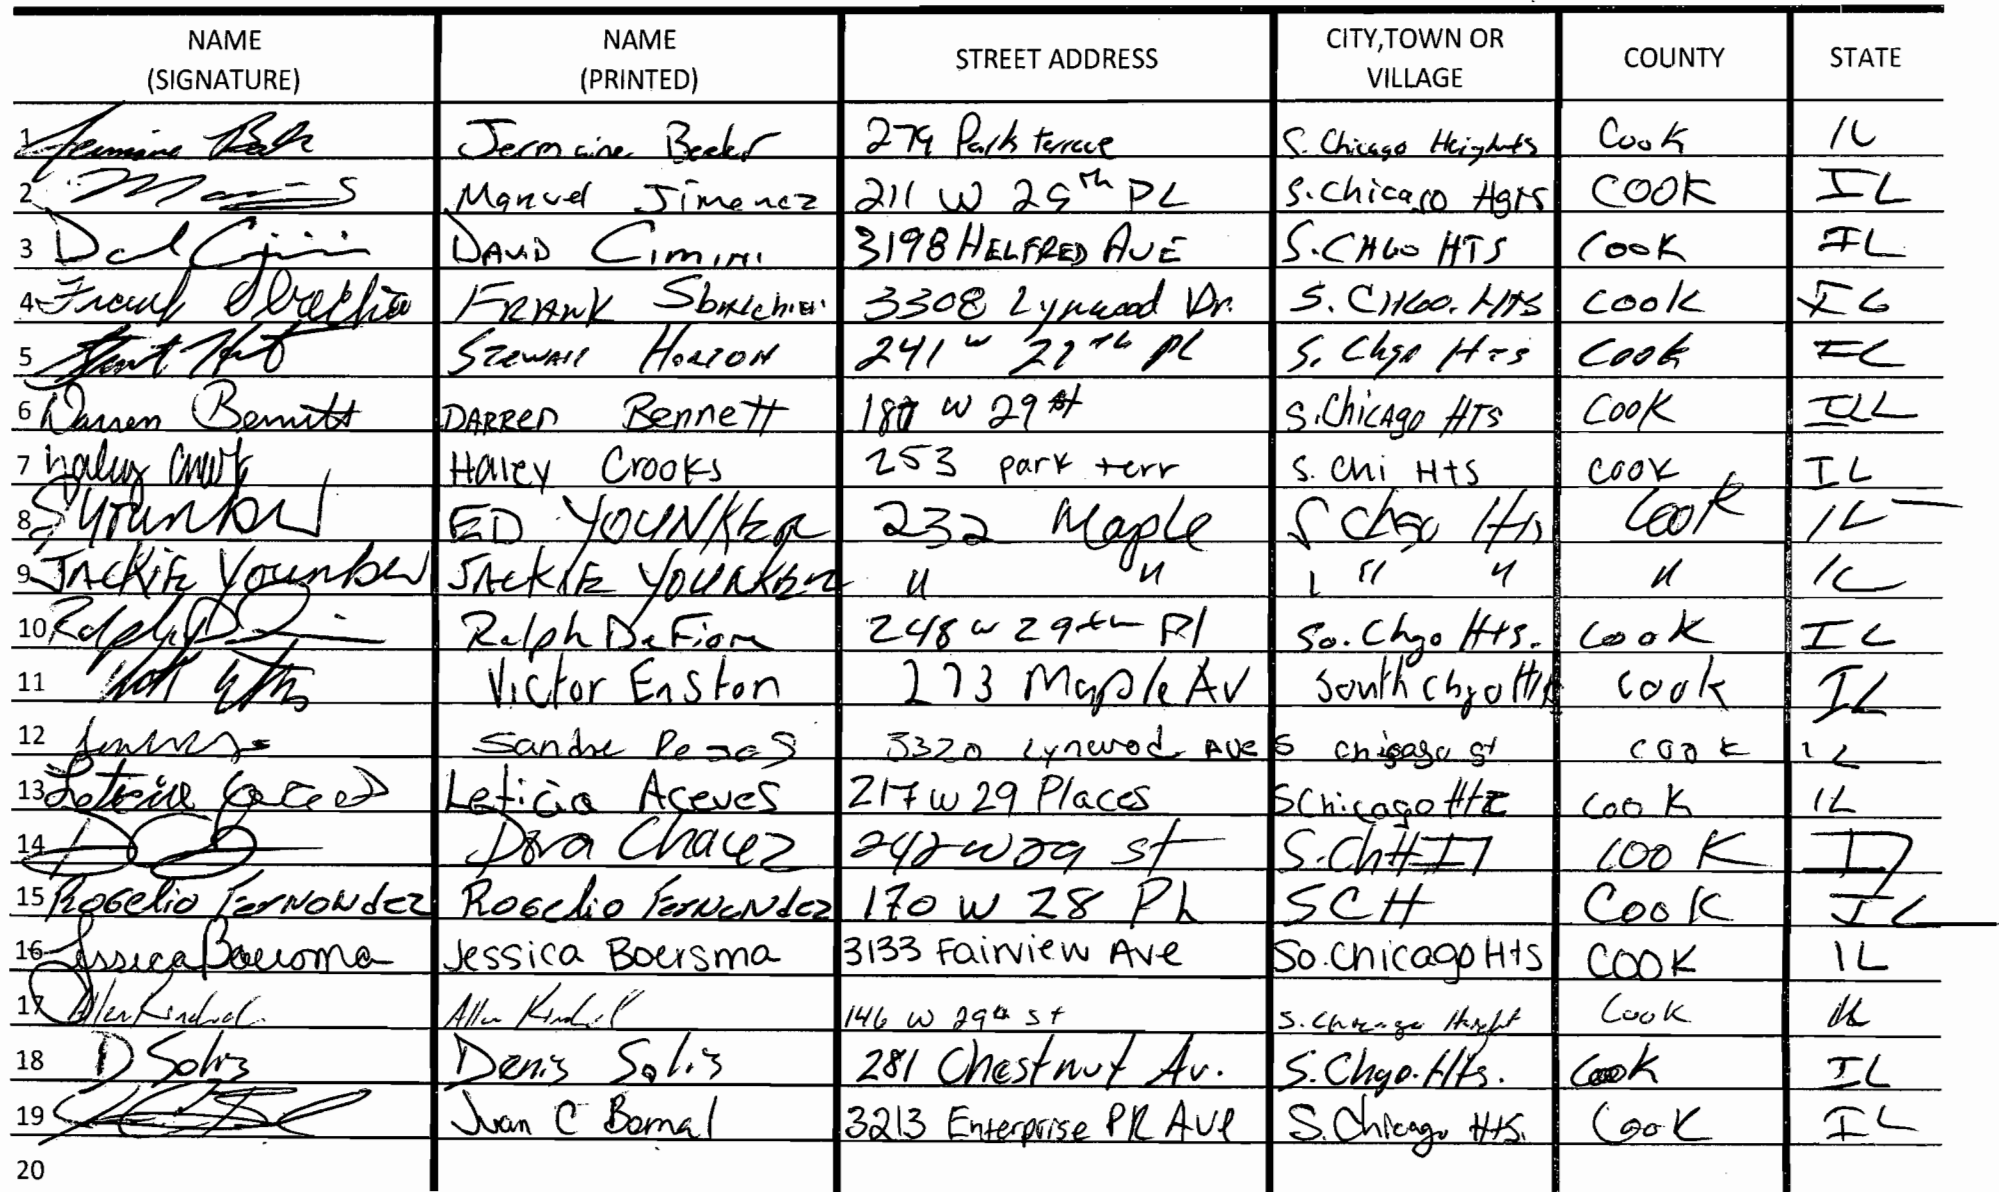 NAME (SIGNATURE) NAME (PRINTED) STREET ADDRESS CITY,TOWN OR VILLAGE COUNTY STATE
1 Jermaine 279 Park Terrace S. Chicago Heights Cook IL
2 Manuel Jimenez 211 W PL S. Chicago Hgts COOK IL
3 DAVID CIMINI 3198 HELFRED AVE S. CHGO HTS COOK IL
4 Frank FRANK 3308 Lynwood Dr. S. CHGO. HTS COOK IL
5 STEWART HORTON 241 W PL S. Chgo HTS COOK IL
6 Darren Bennett DARREN Bennett W 29 st S. CHICAGO HTS COOK ILL
7 Haley HALEY Crooks 253 park terr S. Chi Hts COOK IL
8 Younker ED YOUNKER 232 Maple S Chgo Hts Cook IL
9 JACKIE Younker JACKIE YOUNKER " " " " " IL
10 Ralph Ralph DeFiore 248 W 29th Pl So. Chgo Hts. Cook IL
11 Victor Easton 273 Maple AV South Chgo Hts Cook IL
12 3320 Lynwood AVE S COOK IL
13 Leticia Aceves 217 W 29 Places S Chicago Cook IL
14 Dora Chavez W 29 st COOK
15 Rogelio Rogelio 170 W 28 PL SCH COOK IL
16 Jessica Boersma Jessica Boersma 3133 Fairview Ave So. Chicago Hts COOK IL
17 Allen Kindred Allen 146 W 29th st S. Chicago Height Cook IL
18 D Solis Denis Solis 281 Chestnut Av. S. Chgo. Hts. Cook IL
19 Juan C 3213 Enterprise PK AVE S. Chicago Hts. Cook IL
20